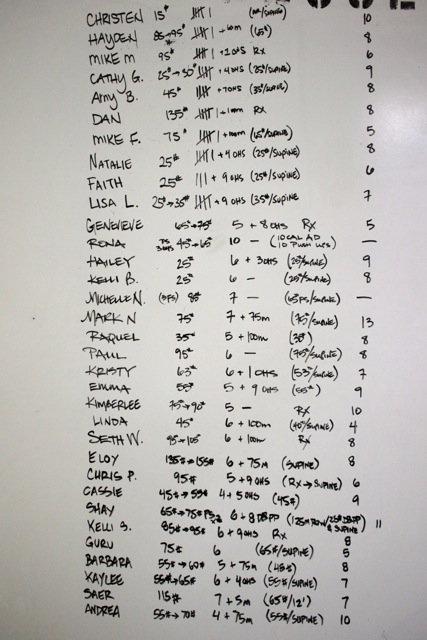 CHRISTEN 15# 𝍸 I (OR/SUPINE) 10
HAYDEN 85→95# 𝍸 I +60m (65#) 8
MIKE M 95# 𝍸 I +2 OHS RX 6
CATHY G. 25#→30# 𝍸 I +4 OHS (25#/SUPINE) 9
Amy B. 45# 𝍸 +7 OHS (35#/SUPINE) 8
DAN 135# 𝍸 I +100m RX 8
MIKE F. 75# 𝍸 I +100m (65#/SUPINE) 5
NATALIE 25# 𝍸 I +4 OHS (25#/SUPINE) 8
FAITH 25# III + 9 OHS (25#/SUPINE) 6
LISA L. 25#→35# 𝍸 + 9 OHS (35#/SUPINE 7
GENEVIEVE 65#→75# 5 + 8 OHS RX 5
RONA 45#→65# 10 — (10 CAL AD 10 PUSH UPS) —
HAILEY 25# 6 + 3 OHS (25#/SUPINE) 9
KELLI B. 25# 6 — (25#/SUPINE) 8
MICHELLE N. (BPS) 85# 7 — (65 PS/SUPINE) —
MARK N 75# 7 + 75m (75#/SUPINE) 13
RAQUEL 35# 5 + 100m (38#) 8
PAUL 95# 6 — (75#/SUPINE) 8
KRISTY 63# 6 + 1 OHS (53#/SUPINE) 7
EMMA 55# 5 + 9 OHS (55#) 9
KIMBERLEE 75#→90# 5 — RX 10
LINDA 45# 6 + 100m (40#/SUPINE) 4
SETH W. 95→105# 6 + 100m RX 8
ELOY 135#→155# 6 + 75m (SUPINE) 8
CHRIS P. 95# 5 + 9 OHS (RX→SUPINE) 6
CASSIE 45#→55# 4 + 5 OHS (45#) 9
SHAY 65#→75# 6 + 8 DBPP & SUPINE) 11
KELLI S. 85#→95# 6 + 9 OHS RX 8
GURU 75# 6 (65#/SUPINE) 5
BARBARA 55#→60# 5 + 75m (45#) 8
KAYLEE 55#→65# 6 + 4 OHS (55#/SUPINE) 7
SAER 115# 7 + 5m (65#/12') 7
ANDREA 55#→70# 4 + 75m (55#/SUPINE) 10